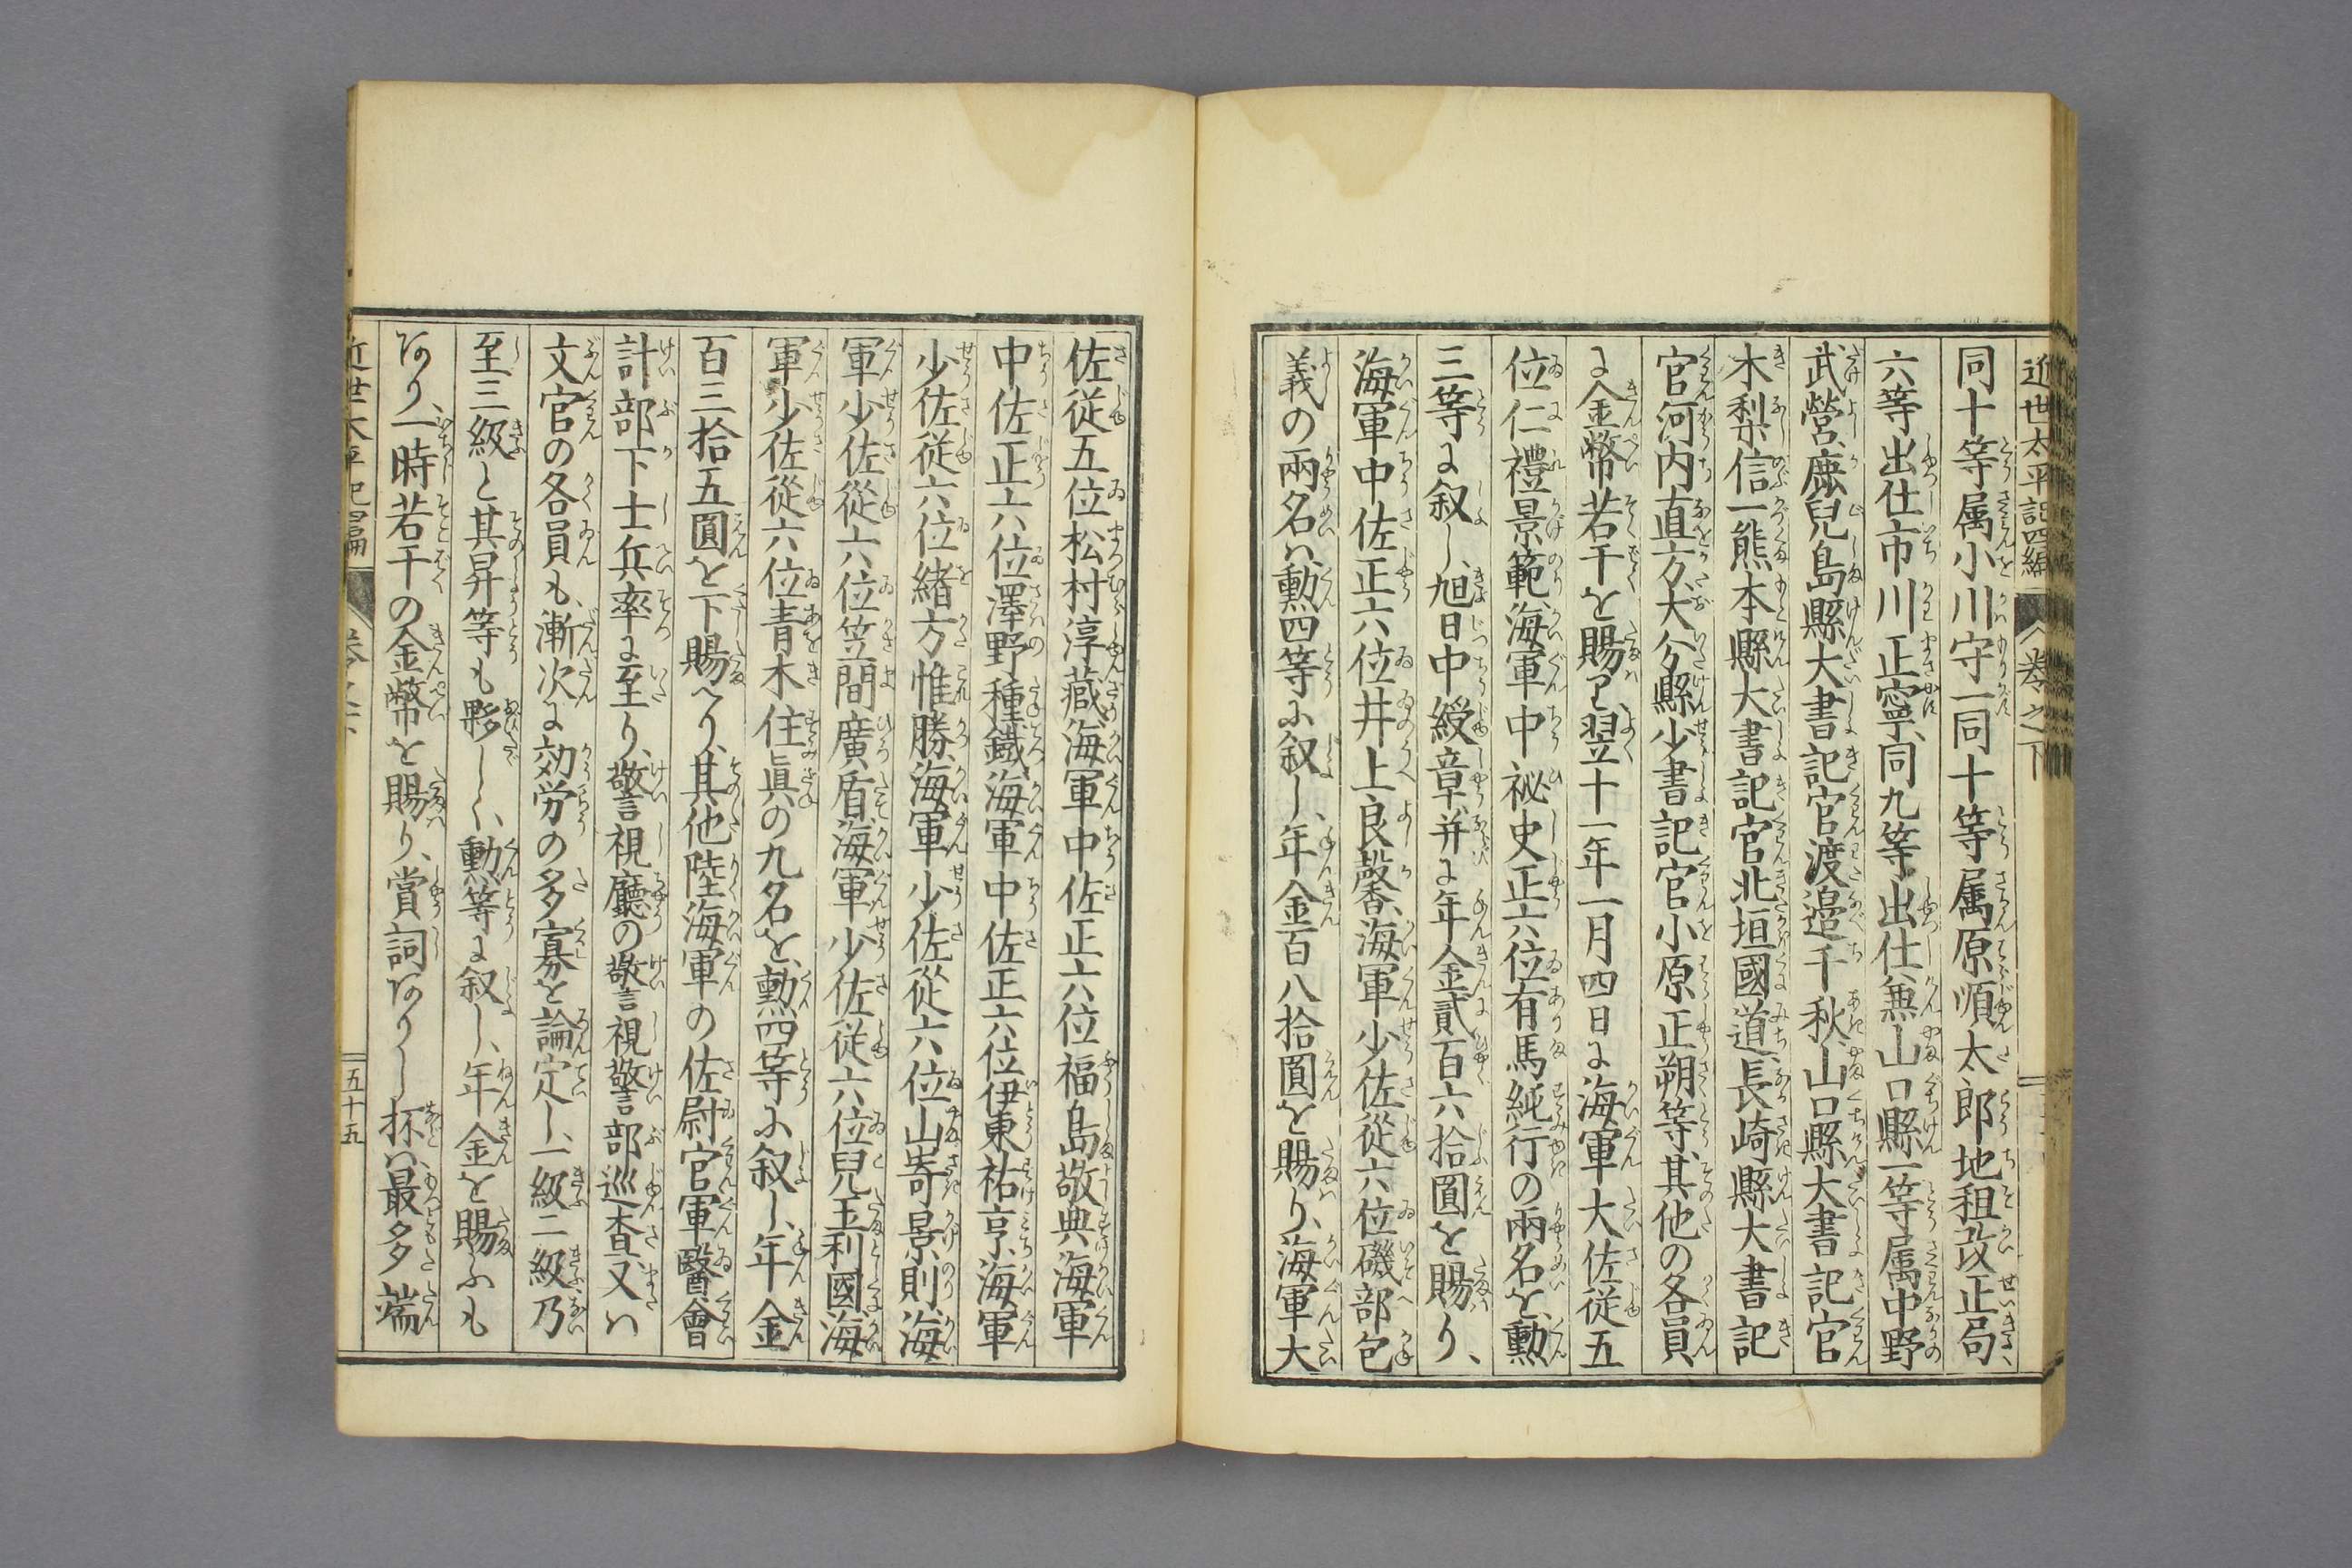 近世太平記四編　巻之下
同十等属小川守一同十等属原順太郎地租改正局
六等出仕市川正寧、同九等出仕兼山口縣一等属中野
武營、鹿兒島縣大書記官渡邉千秋、山口縣大書記官
木梨信一熊本縣大書記官北垣國道、長崎縣大書記
官河内直方、大分縣少書記官小原正朔等、其他の各員、
に金幣若干を賜ハり翌十一年一月四日に海軍大佐従五
位仁禮景範、海軍中祕史正六位有馬純行の兩名を、勲
三等に叙し、旭日中綬章、并に年金貳百六拾圓を賜り、
海軍中佐正六位井上良馨、海軍少佐從六位磯部包
義の兩名ハ、勲四等に叙し、年金百八拾圓を賜り、海軍大
佐従五位松村淳藏、海軍中佐正六位福島敬典海軍
中佐正六位澤野種鐵、海軍中佐正六位伊東祐亨、海軍
少佐従六位緒方惟勝、海軍少佐從六位山嵜景則、海
軍少佐從六位笠間廣盾、海軍少佐従六位兒玉利國、海
軍少佐從六位青木住眞の九名を、勲四等に叙し、年金
百三拾五圓を下賜へり、其他陸海軍の佐尉官軍醫、會
計部下士兵率に至り、警視廳の警視警部巡査、又ハ
文官の各員も、漸次に効労の多寡を論定し、一級二級乃
至三級と其昇等も夥しく、勲等に叙し、年金を賜ふも
あり、一時若干の金幣を賜り、賞詞ありし抔ハ、最多端
近世太平記四編　巻之下　五十五